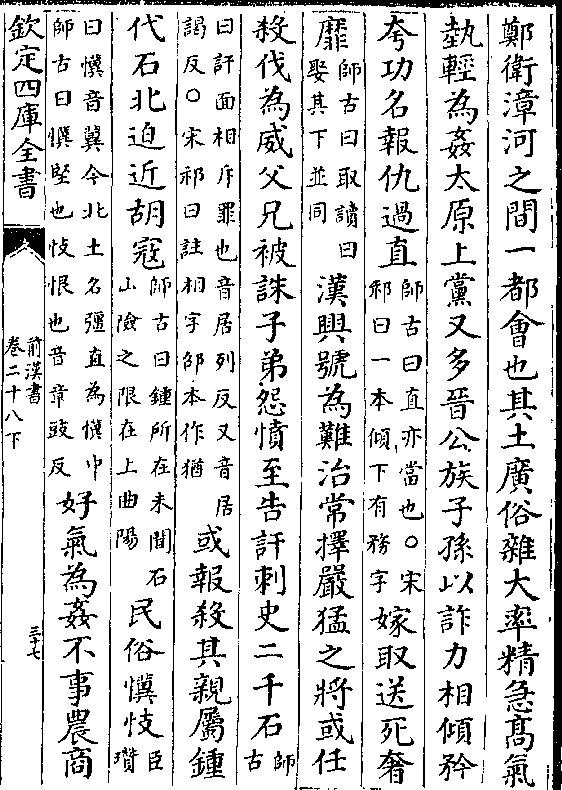 鄭衛漳河之間一都會也其土廣俗雜大率精急髙氣
埶輕為姦太原上黨又多晉公族子孫以詐力相傾矜
夸功名報仇過直師古曰直亦當也〇宋祁曰一本傾下有務字嫁取送死奢
靡師古曰取讀曰娶其下並同漢興號為難治常擇嚴猛之將或任
殺伐為威父兄被誅子弟怨憤至告訐刺史二千石師古
曰訐面相斥罪也音居列反又音居謁反〇宋祁曰註相字邵本作猶或報殺其親屬鍾
代石北迫近胡寇師古曰鍾所在未聞石山險之限在上曲陽民俗懻忮臣瓚
曰懻音冀今北土名彊直為懻中師古曰懻堅也忮恨也音章豉反好氣為姦不事農商
欽定四庫全書
前漢書
卷二十八下
三十七